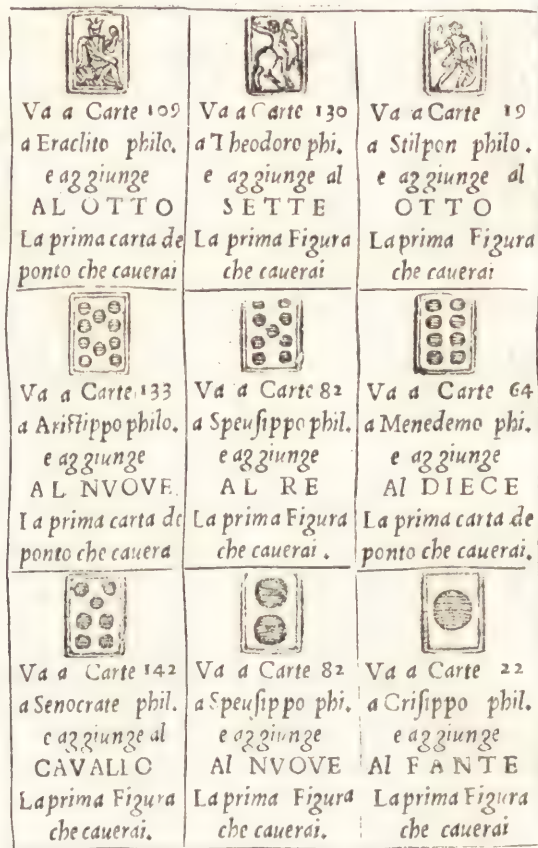 Va a Carte 109
a Eraclito philo.
e aggiunge
AL OTTO
La prima carta de
ponto che cauerai
Va a Carte 130
a Theodoro phi.
e aggiunge al
SETTE
La prima Figura
che cauerai
Va a Carte 19
a Stilpon philo.
e aggiunge al
OTTO
La prima Figura
che cauerai
Va a Carte 133
a Aristippo philo.
e aggiunge
AL NVOVE
La prima carta de
ponto che cauera
Va a Carte 82
a Speusippo phil.
e aggiunge
AL RE
La prima Figura
che cauerai.
Va a Carte 64
a Menedemo phi.
e aggiunge
Al DIECE
La prima carta de
ponto che cauerai.
Va a Carte 142
a Senocrate phil.
e aggiunge al
CAVALLO
La prima Figura
che cauerai.
Va a Carte 82
a Speusippo phi.
e aggiunge
Al NVOVE
La prima Figura
che cauerai.
Va a Carte 22
a Crisippo phil.
e aggiunge
Al FANTE
La prima Figura
che cauerai